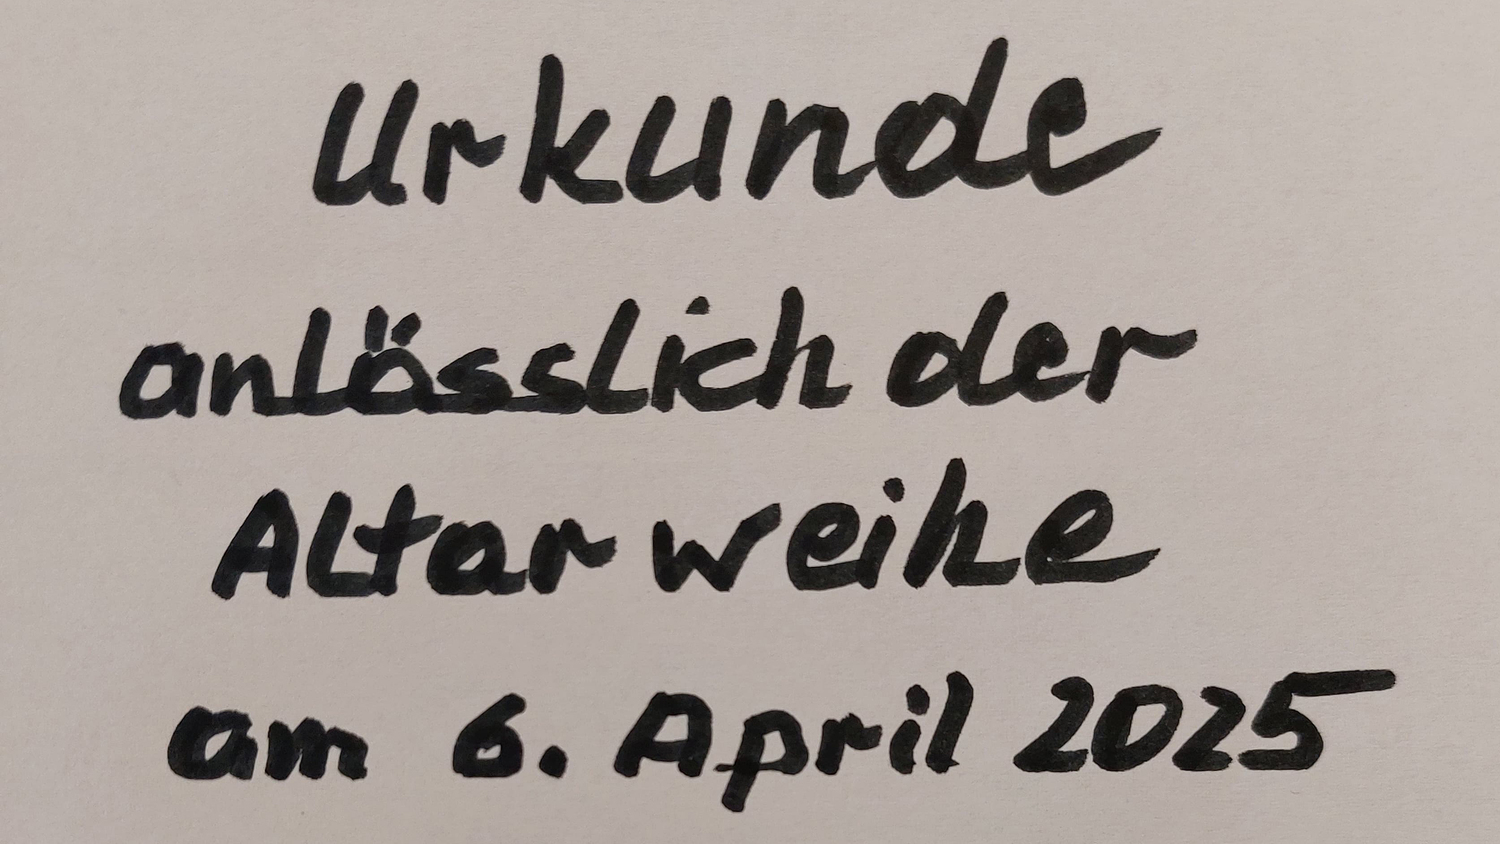 Urkunde
anlässlich der
Altarweihe
am 6. April 2025